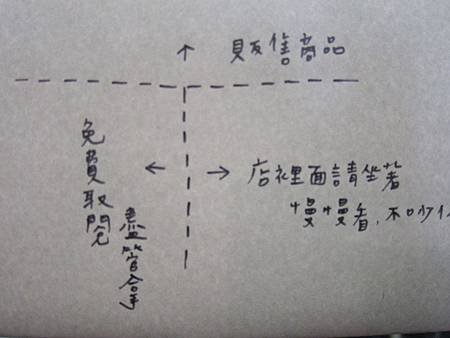 販售商品
免費取閱
盡管拿
店裡面請坐著
慢慢看,不吵